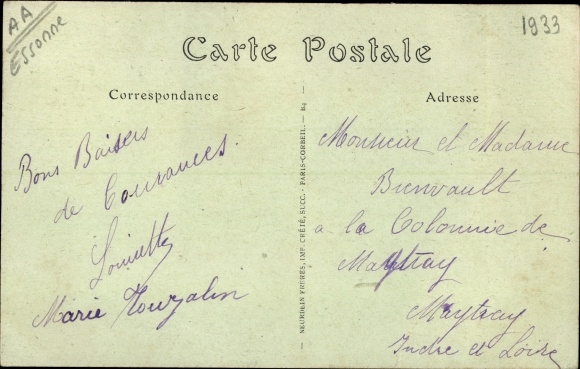 AA
Essonne
1933
Carte Postale
Correspondance
Adresse
Bons Baisers
de Courances.
Marie Tourzalin
NEURDEIN FRÈRES, IMP. CRÉTÉ, SUCC. - PARIS-CORBEIL. - 84
Monsieur et Madame
Bienvault
a la Colonnie de
Mettray
Indre et Loire